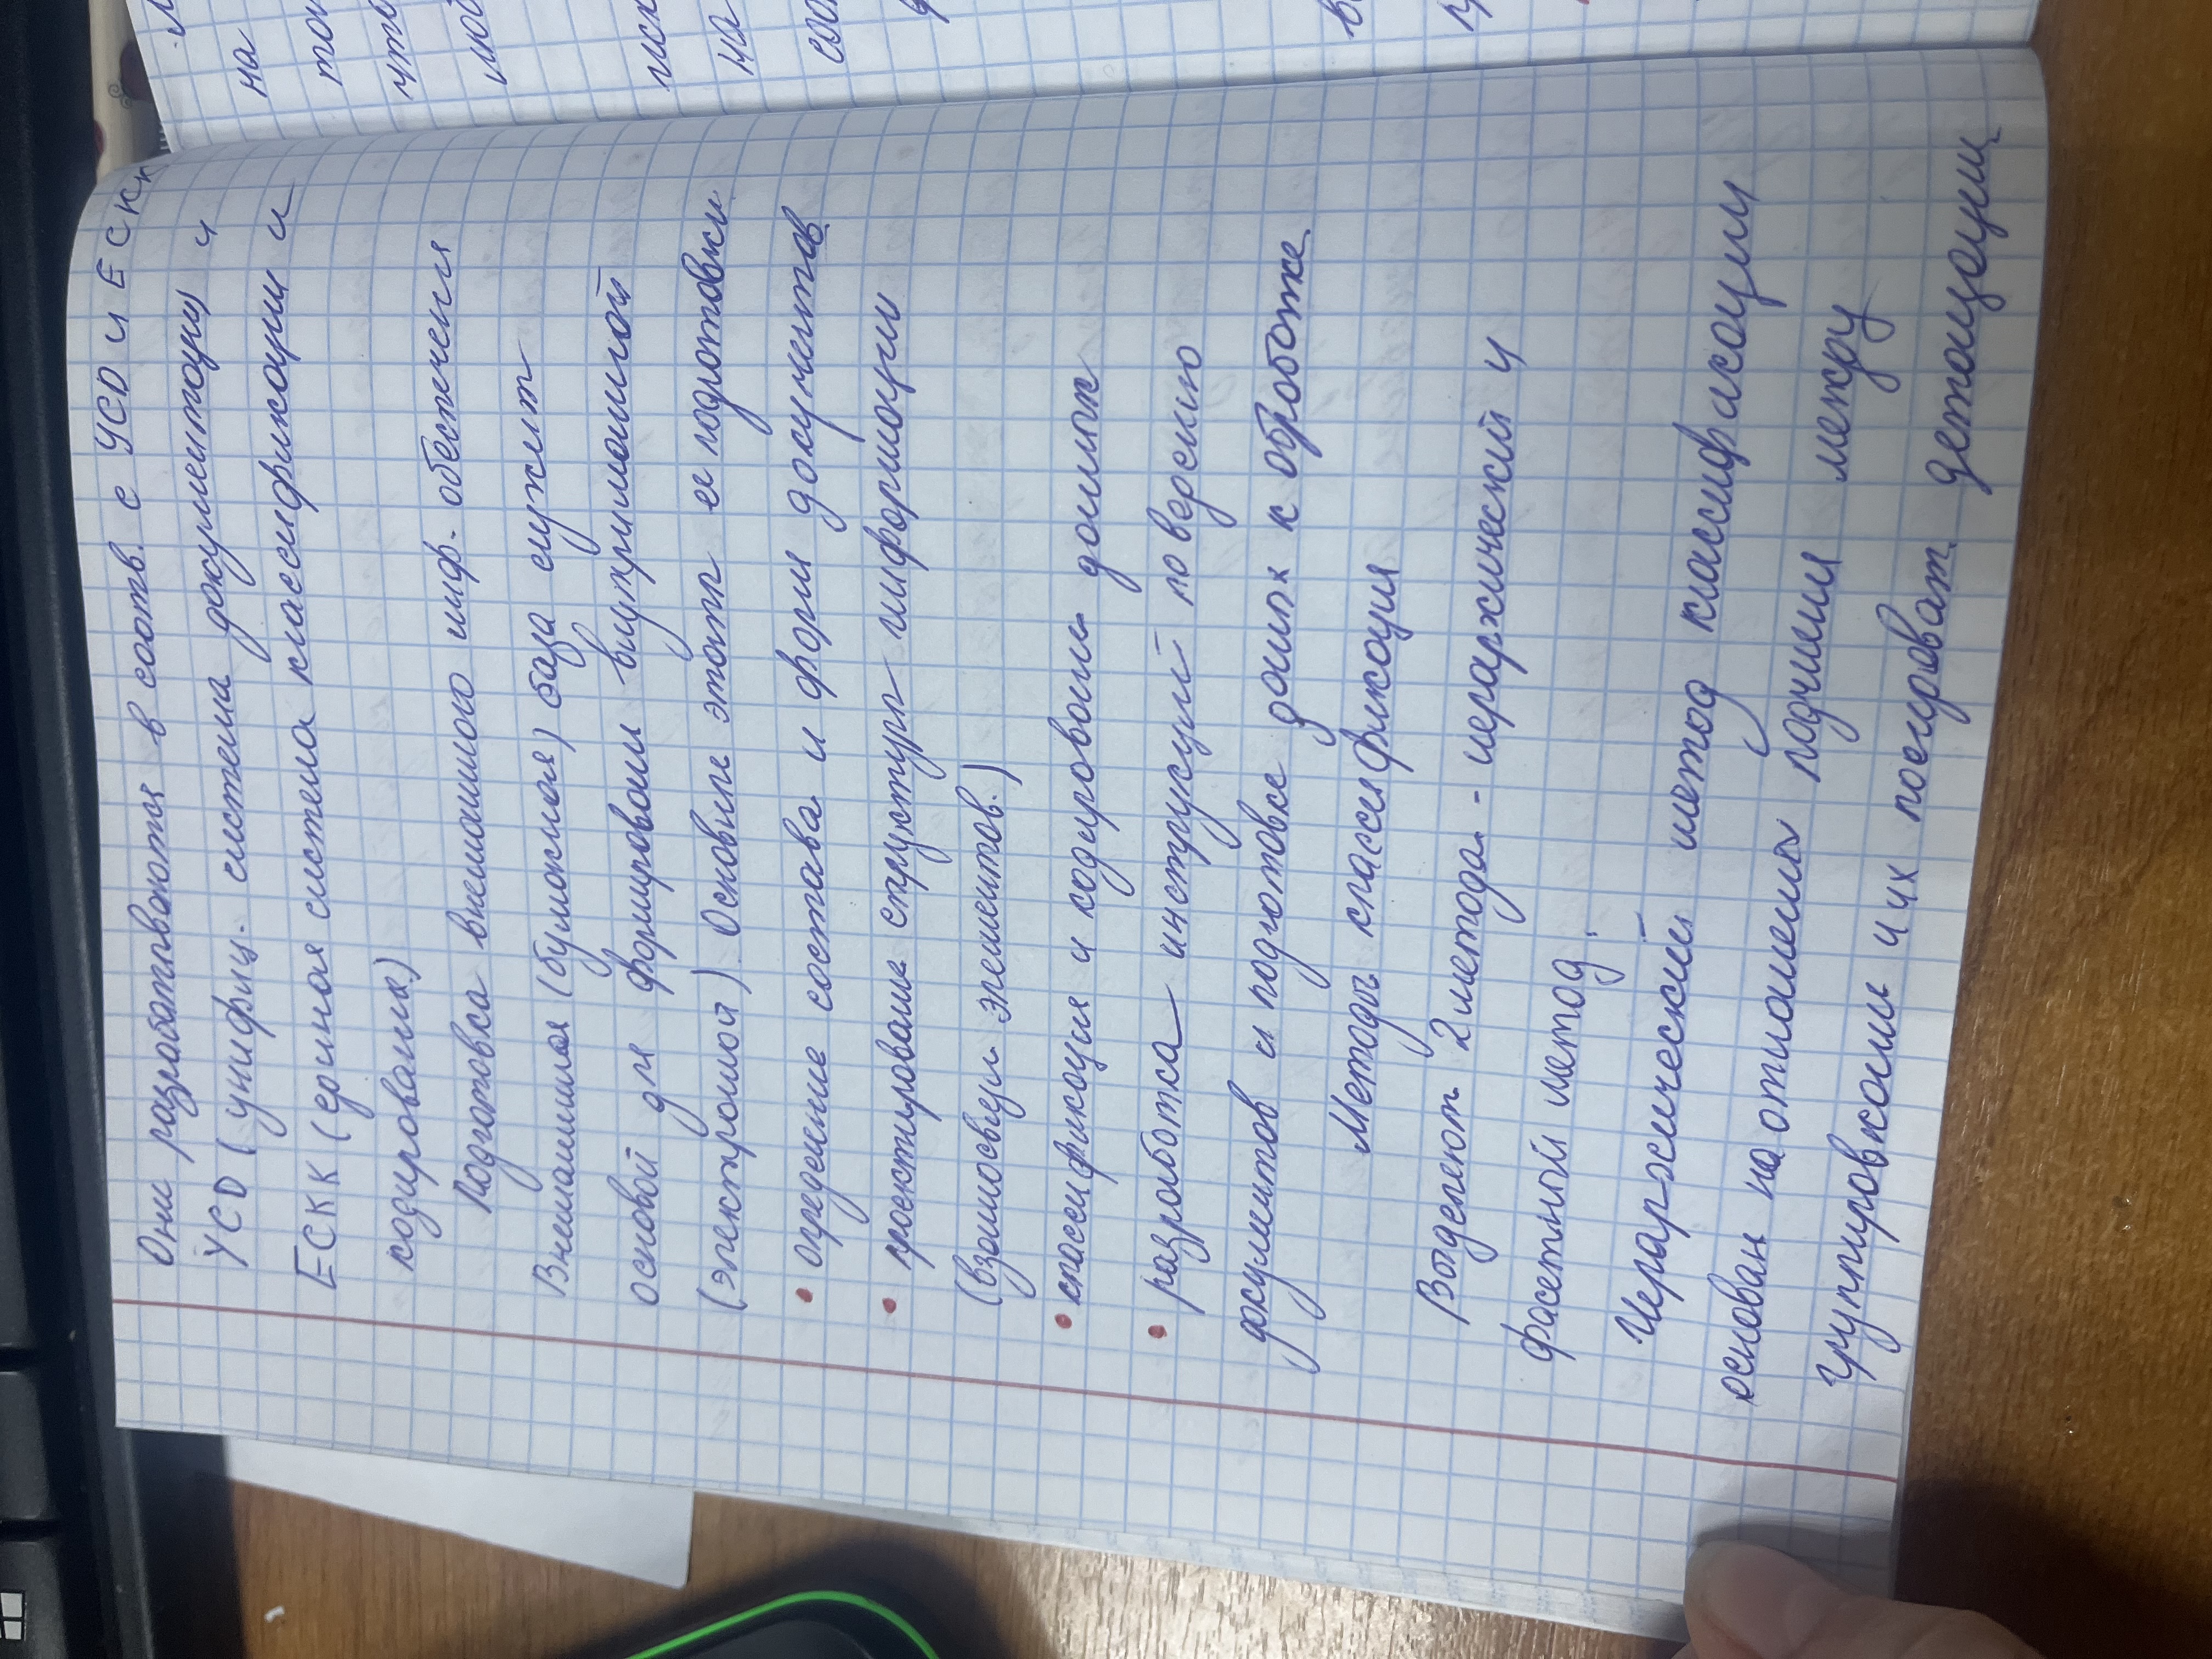 Они разработвоются в соотв. с УСD и ЕСКК
УСD (унифиц. система документации и
ЕСКК (единая система классификации и
кодирования)
Подготовка внемашиного инф. обеспечения
Внемашиная (буможная) база служит
основой для формировани внутримашиной
(электроной). Основые этапы ее подготовки
• опредение состава и форм документов
• проектировани структуры информации
(взаимосвези элементов.)
• классификация и кодировани даных
• разработка инструкций по версию
документов и подготовке даных к обработке
Методы классификация
Воделяют 2 метода - иерархический и
фасетный метод.
Иерархический метод классификации
основан на отношениях подчинени между
группировками и их последоват. детолизации
на